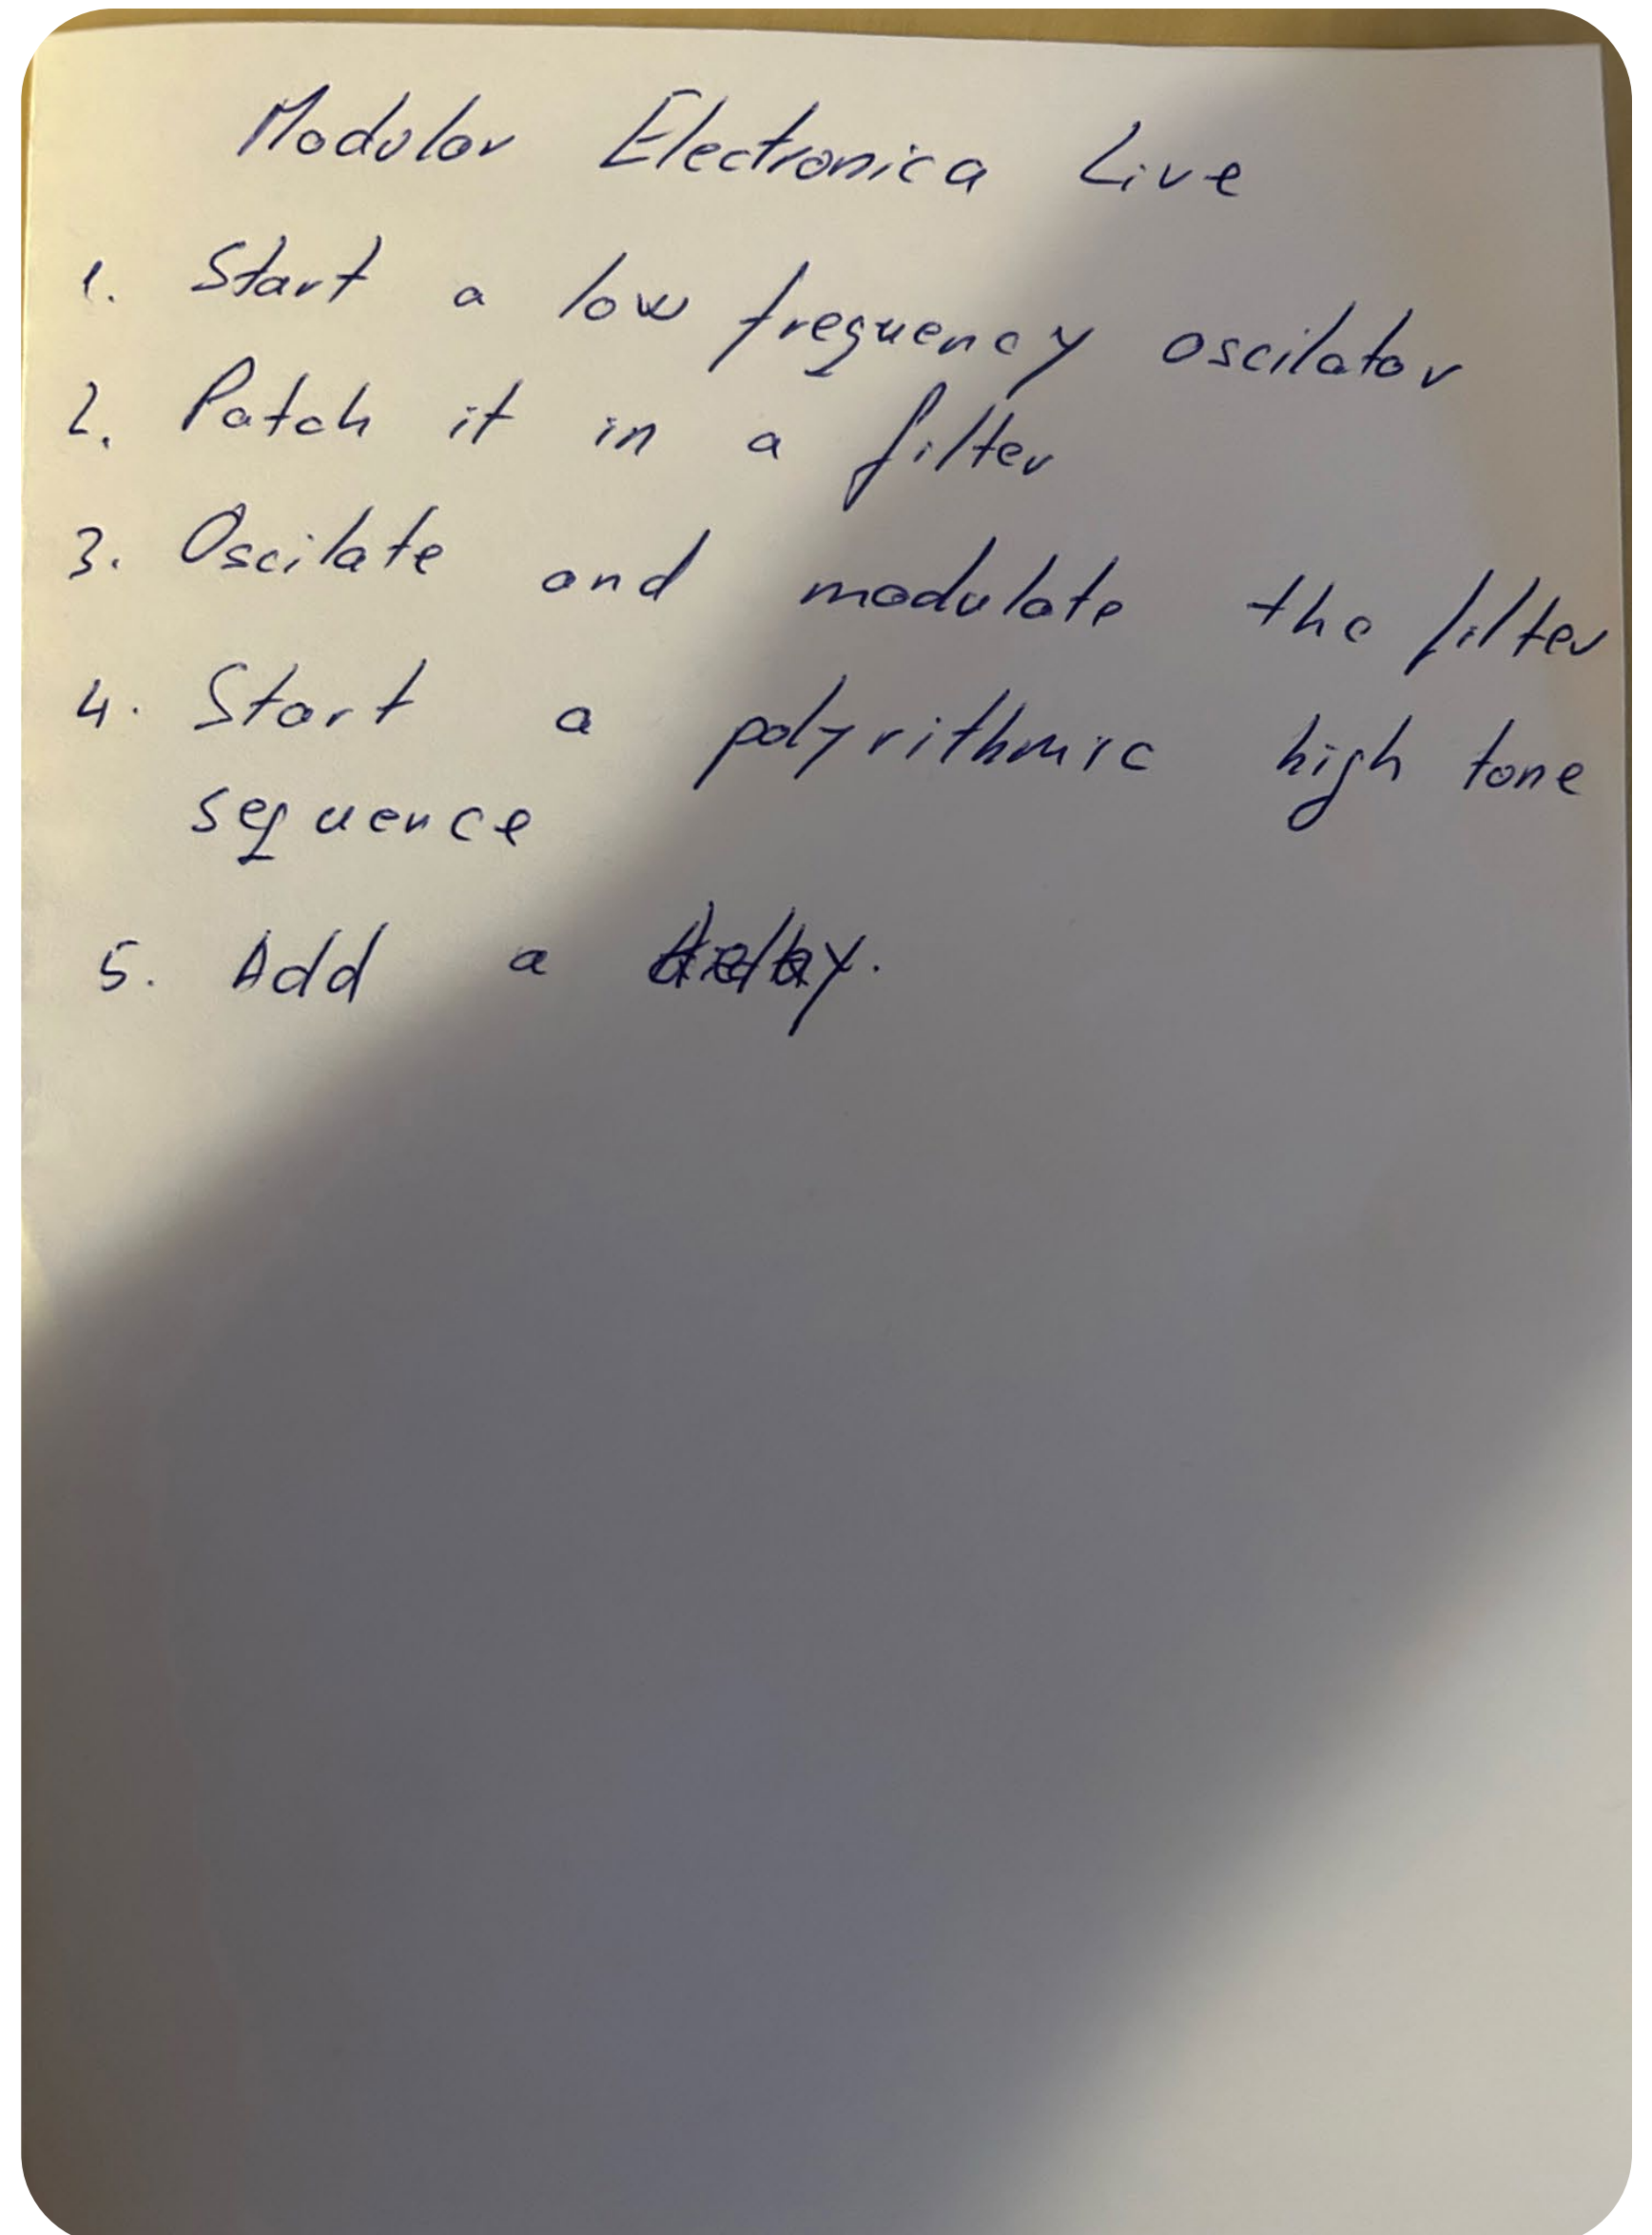 Modular Electronica Live
1. Start a low frequency oscilator
2. Patch it in a filter
3. Oscilate and modulate the filter
4. Start a polyrithmic high tone
sequence
5. Add a delay.